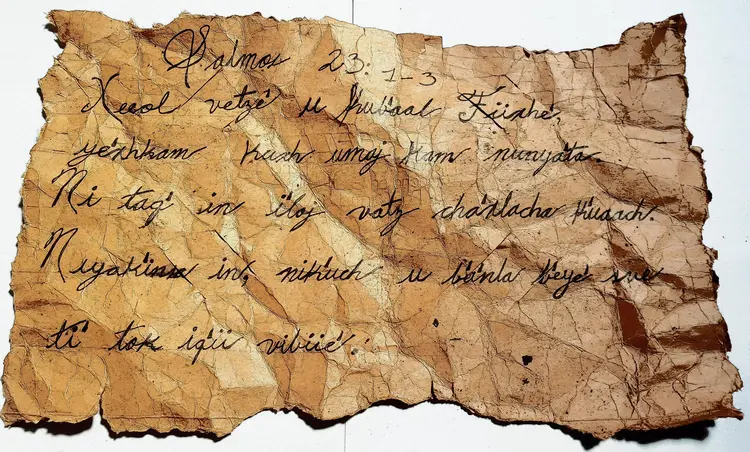 Salmos 23:1-3
Xeeol vetz'é u kub'aal Tiixhe',
yé'xhkam kuxh umaj kam nunyá'ta.
Ni taq' in ilaj vatz chá'xlacha k'uaach.
Niyak'insa in, nik'uch u b'á'nla b'eyé sve
ti' tok iq'ii vib'iié'.